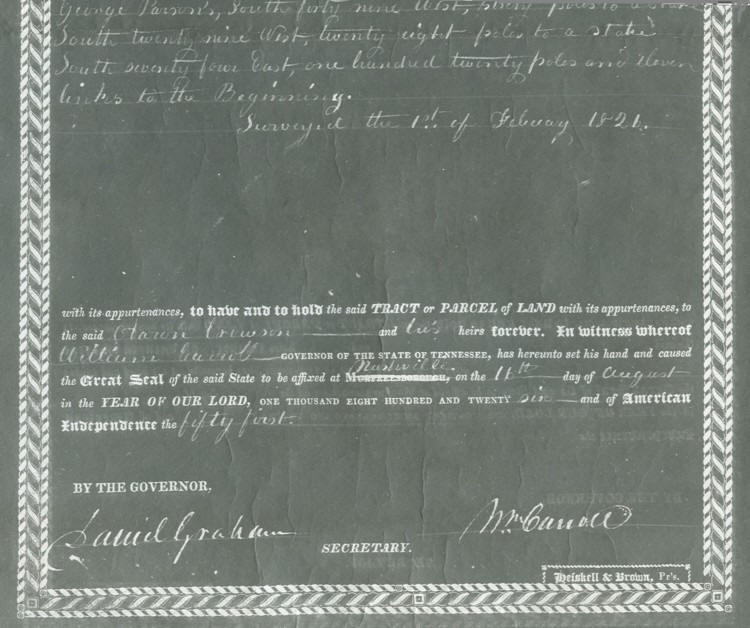 George Parson's, South forty nine West, poles to a
South twenty nine West, twenty eight poles to a stake
South seventy four East, one hundred twenty poles and eleven
links to the Beginning.
Surveyed the 1st of Febuary 1821.
with its appurtenances, to have and to hold the said TRACT or PARCEL of LAND with its appurtenances, to
the said Aaron Crowson and his heirs forever. In witness whereof
William Carroll GOVERNOR OF THE STATE OF TENNESSEE, has hereunto set his hand and caused
Nashville
the Great Seal of the said State to be affixed at MURFREESBOROUGH, on the 11th day of August
in the YEAR OF OUR LORD, ONE THOUSAND EIGHT HUNDRED AND TWENTY six and of American
Independence the fifty first.
BY THE GOVERNOR.
Daniel Graham
Wm Carroll
SECRETARY.
Heiskell & Brown, Pr's.